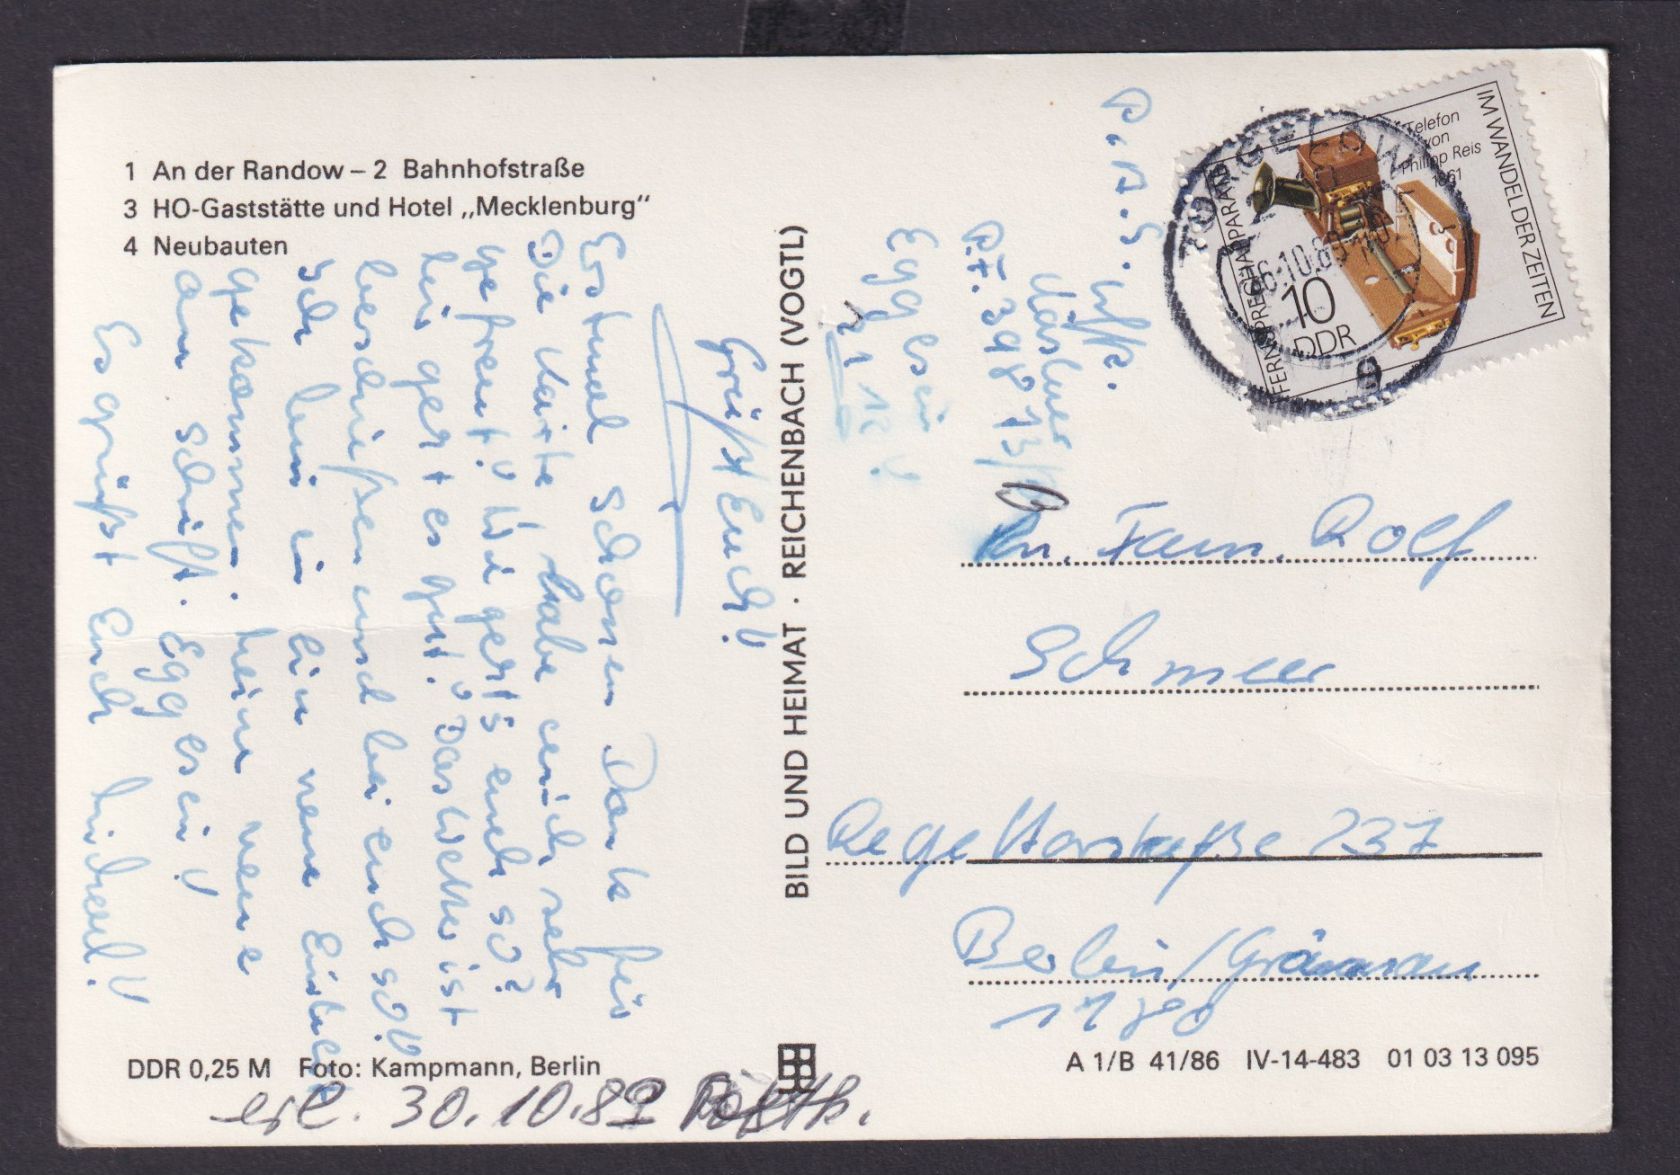 1 An der Randow – 2 Bahnhofstraße
3 HO-Gaststätte und Hotel „Mecklenburg"
4 Neubauten
Erstmal schönen Dank für
Die Karte, habe mich sehr
gefreut! Wie gert's euch so?
mir gert es gut! Das Wetter ist
beschießen und bei euch so?
Ich bin in ein neue Einheit
gekommen. meine neue
anschrift. Eggesin!
Es grüßt Euch
Grüßt Euch!
BILD UND HEIMAT · REICHENBACH (VOGTL)
P.A.S. Uffz.
PF. 39813/
Eggesin
2112
An. Fam. Rolf
Schmeer
237
Berlin/Grünau
1180
IM WANDEL DER ZEITEN
FERNSPRECHAPPARATE
Telefon
von
Philipp Reis
1861
10
DDR
TORGELOW
DDR 0,25 M Foto: Kampmann, Berlin
A 1/B 41/86 IV-14-483 01 03 13 095
erl. 30.10.89